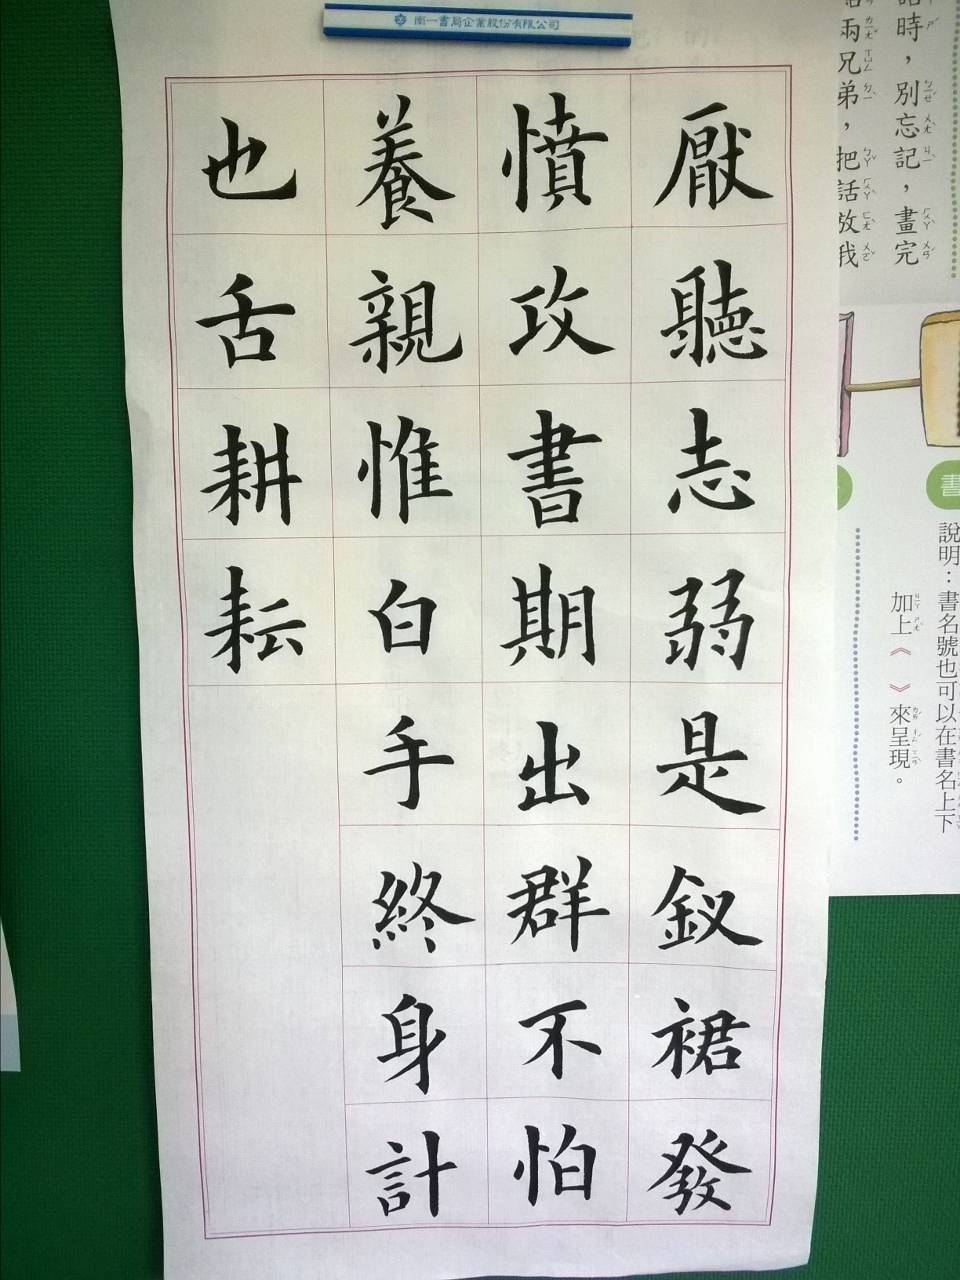 南一書局企業股份有限公司
厭聽志弱是釵裙發
憤攻書期出群不怕
養親惟白手終身計
也舌耕耘
時，別忘記，畫完
兩兄弟，把話放我
書
說明：書名號也可以在書名上下
加上《 》來呈現。